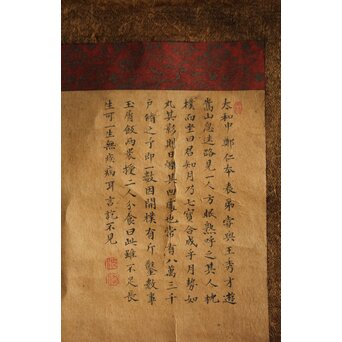 太和中鄭仁本表弟嘗與王秀才遊
嵩山忽迷路見一人方眠熟呼之其人枕
襆而坐曰君知月乃七寶合成乎月勢如
丸其影則日爍其凹處也常有八萬三千
戶脩之予即一數因開襆有斤鑿數事
玉屑飯兩裹授二人分食曰此雖不足長
生可一生無疾病耳言訖不見